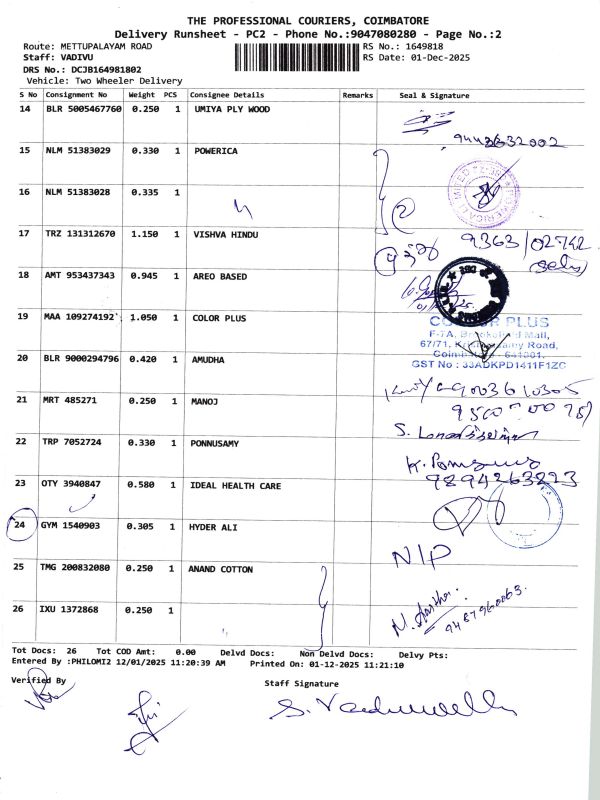 THE PROFESSIONAL COURIERS, COIMBATORE
Delivery Runsheet - PC2 - Phone No.:9047080280 - Page No.:2
Route: METTUPALAYAM ROAD RS No.: 1649818
Staff: VADIVU RS Date: 01-Dec-2025
DRS No.: DCJB164981802
Vehicle: Two Wheeler Delivery
S No Consignment No Weight PCS Consignee Details Remarks Seal & Signature
14 BLR 5005467760 0.250 1 UMIYA PLY WOOD
15 NLM 51383029 0.330 1 POWERICA
16 NLM 51383028 0.335 1
17 TRZ 131312670 1.150 1 VISHVA HINDU
18 AMT 953437343 0.945 1 AREO BASED
19 MAA 109274192 1.050 1 COLOR PLUS
COLOR PLUS
F-7A, Brookefield Mall,
67/71, Krishnasamy Road,
Coimbatore - 641001.
GST No : 33ADKPD1411F1ZC
20 BLR 9000294796 0.420 1 AMUDHA
21 MRT 485271 0.250 1 MANOJ
22 TRP 7052724 0.330 1 PONNUSAMY
23 OTY 3940847 0.580 1 IDEAL HEALTH CARE
24 GYM 1540903 0.305 1 HYDER ALI
N/P
25 TMG 200832080 0.250 1 ANAND COTTON
26 IXU 1372868 0.250 1
Tot Docs: 26 Tot COD Amt: 0.00 Delvd Docs: Non Delvd Docs: Delvy Pts:
Entered By :PHILOMI2 12/01/2025 11:20:39 AM Printed On: 01-12-2025 11:21:10
Verified By Staff Signature